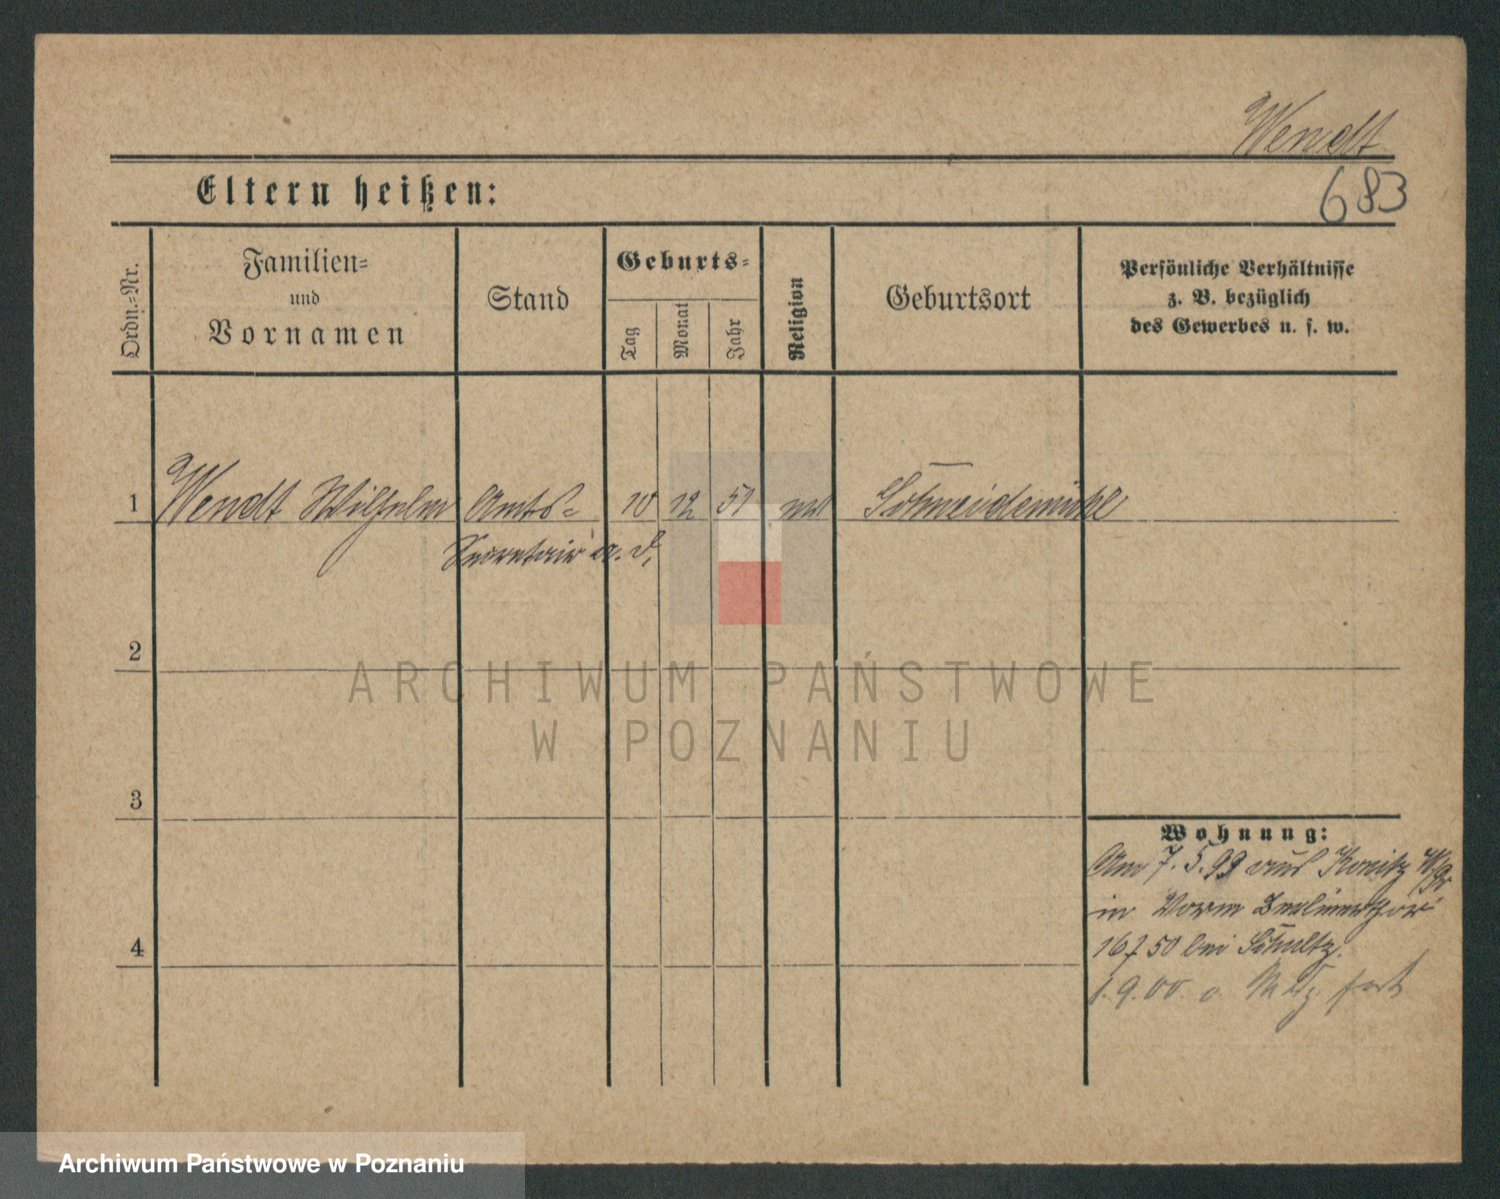 Wendt
683
Eltern heißen:
Ordn.-Nr.
Familien-
und
Vornamen
Stand
Geburts-
Tag
Monat
Jahr
Religion
Geburtsort
Persönliche Verhältnisse
z. B. bezüglich
des Gewerbes u. s. w.
1 Wendt Wilhelm Amts- 10 12 51 Schneidemühl
Secretair a. d.
2
ARCHIWUM PAŃSTWOWE
W POZNANIU
3
Wohnung:
Am 7.5.99 aus Konitz W/Pr
in Vorm Berlinerthor
4
16/50 bei Schultz.
1.9.00 fort
Archiwum Państwowe w Poznaniu